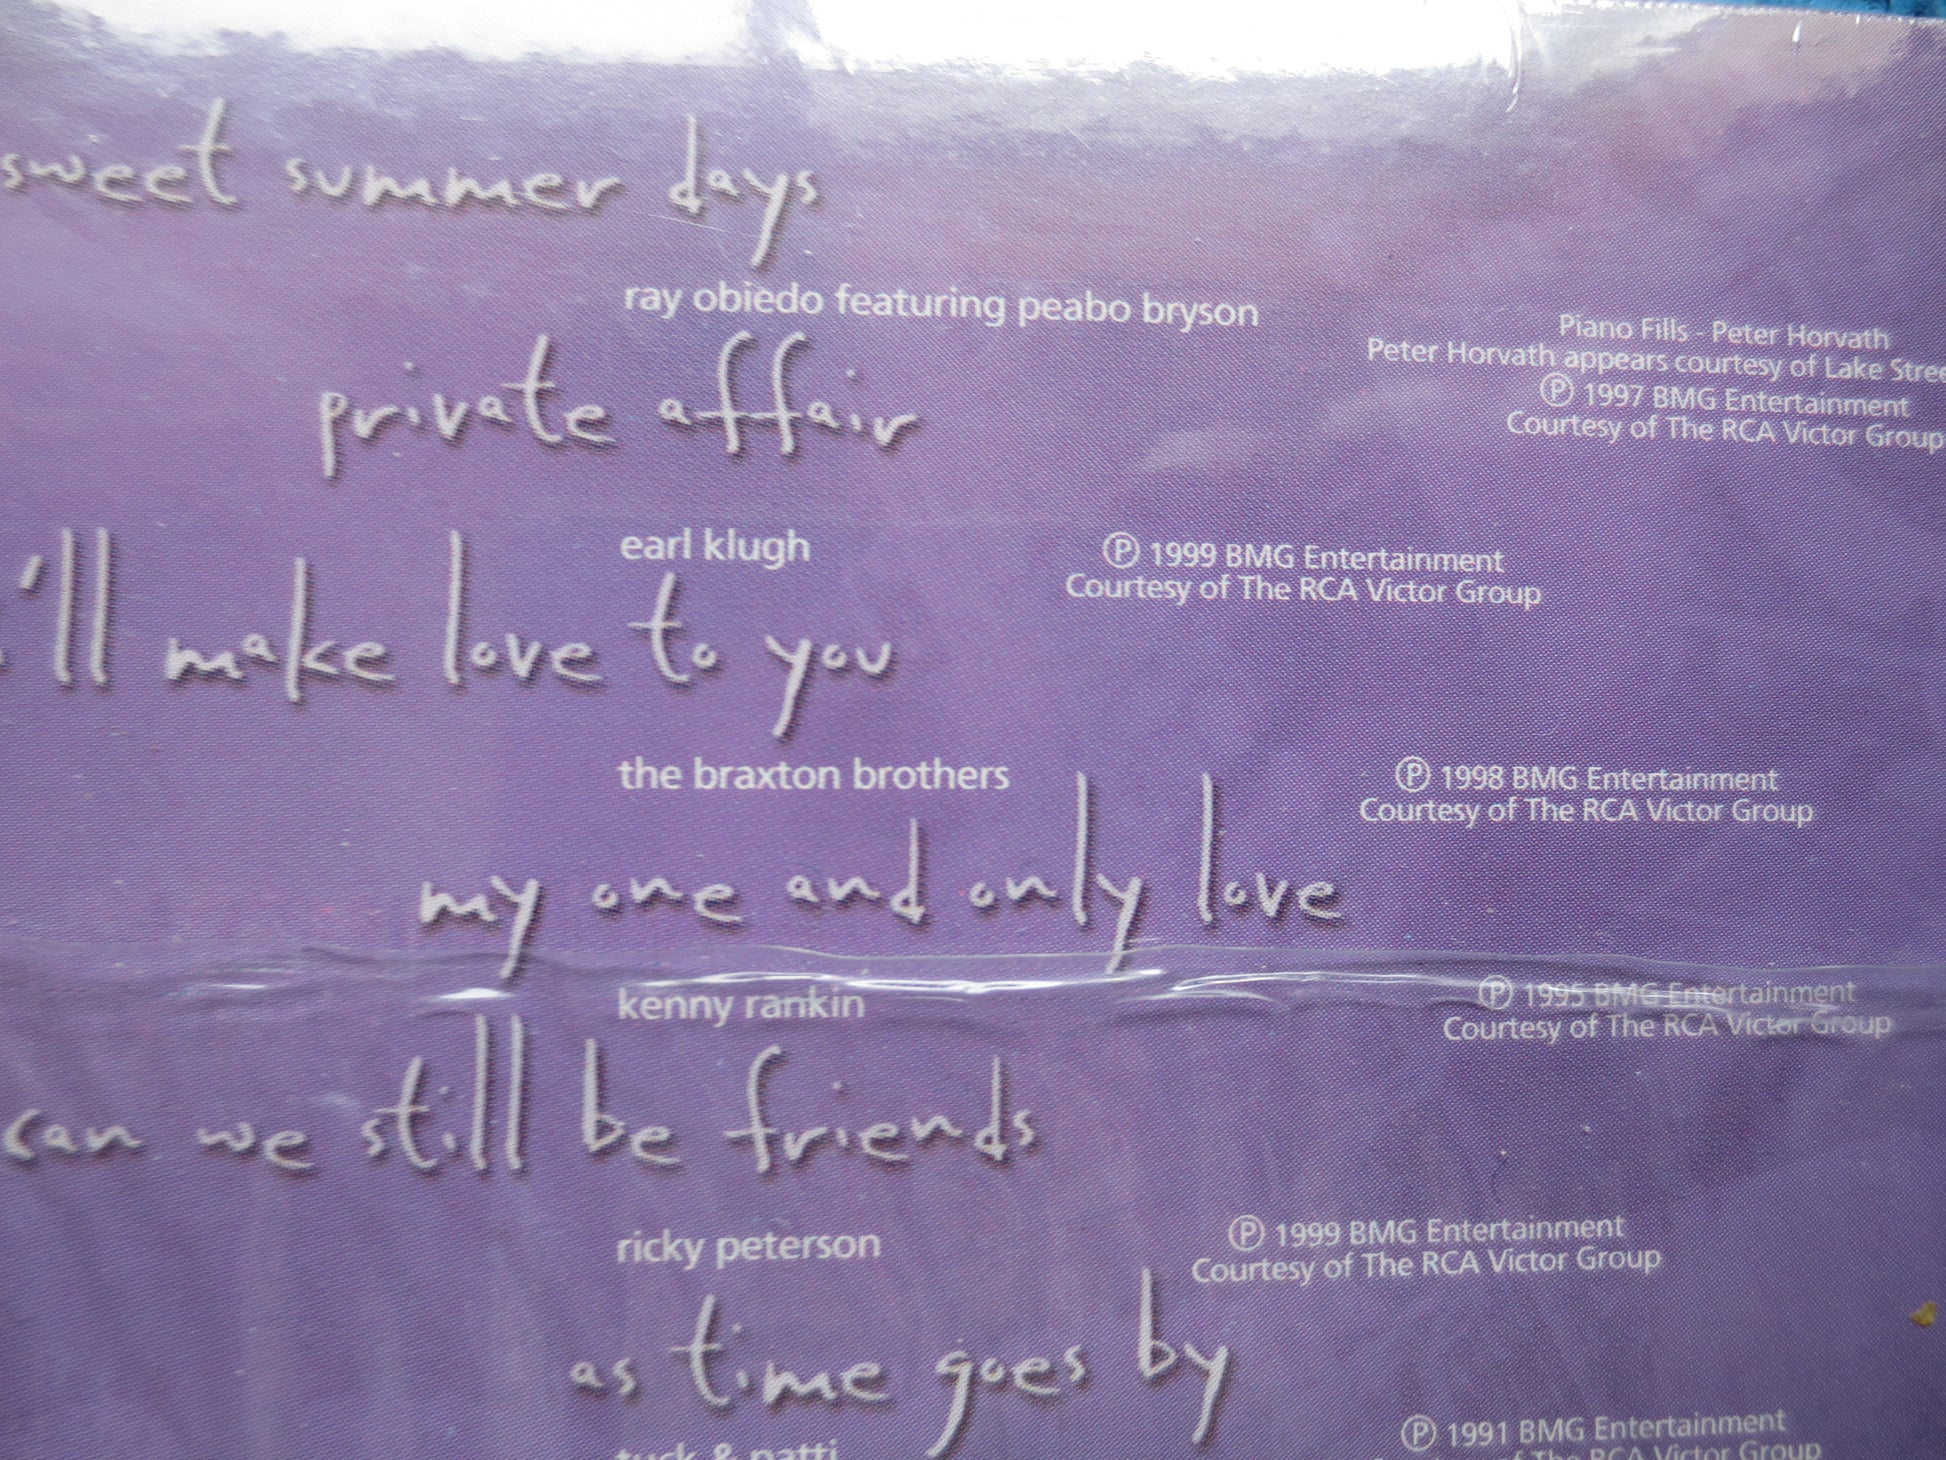 sweet summer days
ray obiedo featuring peabo bryson
Piano Fills - Peter Horvath
Peter Horvath appears courtesy of Lake
Ⓟ 1997 BMG Entertainment
Courtesy of The RCA Victor Group
private affair
earl klugh
Ⓟ 1999 BMG Entertainment
Courtesy of The RCA Victor Group
'll make love to you
the braxton brothers
Ⓟ 1998 BMG Entertainment
Courtesy of The RCA Victor Group
my one and only love
kenny rankin
Ⓟ 1995 BMG Entertainment
Courtesy of The RCA Victor Group
can we still be friends
ricky peterson
Ⓟ 1999 BMG Entertainment
Courtesy of The RCA Victor Group
as time goes by
tuck & patti
Ⓟ 1991 BMG Entertainment
of The RCA Victor Group